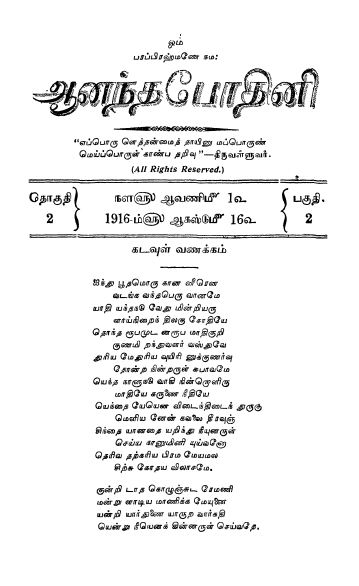 ஓம்
பரப்பிரஹ்மணே நம:
ஆனந்தபோதினி
“எப்பொரு ளெத்தன்மைத் தாயினு மப்பொருண்
மெய்ப்பொருள் காண்ப தறிவு”—திருவள்ளுவர்.
(All Rights Reserved.)
தொகுதி 2
நள௵ ஆவணி௴ 1௳
1916-ம்௵ ஆகஸ்டு௴ 16௳
பகுதி. 2
கடவுள் வணக்கம்
ஐந்து பூதமொரு கான லீரென
வடங்க வந்தபெரு வானமே
யாதி யந்தநடு வேது மின்றியரு
ளாய்நிறைந் திலகு சோதியே
தொந்த ரூபமுட னரூப மாதிகுறி
குணமி றந்துவளர் வஸ்துவே
துரிய மேதுரிய வுயிரி னுக்குணர்வு
தோன்ற நின்றருள் சுபாவமே
மாதியே கருணை நீதியே
யெந்தை யேயென விடைந்திடைந் துருகு
மெளிய னேன் கவலை தீரவுஞ்
சிந்தை யானதை யறிந்து நீயுனருள்
செய்ய நானுமினி யுய்வனோ
தெரிவ தற்கரிய பிரம மேயமல
சிற்சு கோதய விலாசமே.
குன்றி டாத கொழுஞ்சுட ரேமணி
மன்று ளாடிய மாணிக்க மேயுனை
யன்றி யார்துணை யாருற வார்கதி
யென்று நீயெனக் கின்னருள் செய்வதே.